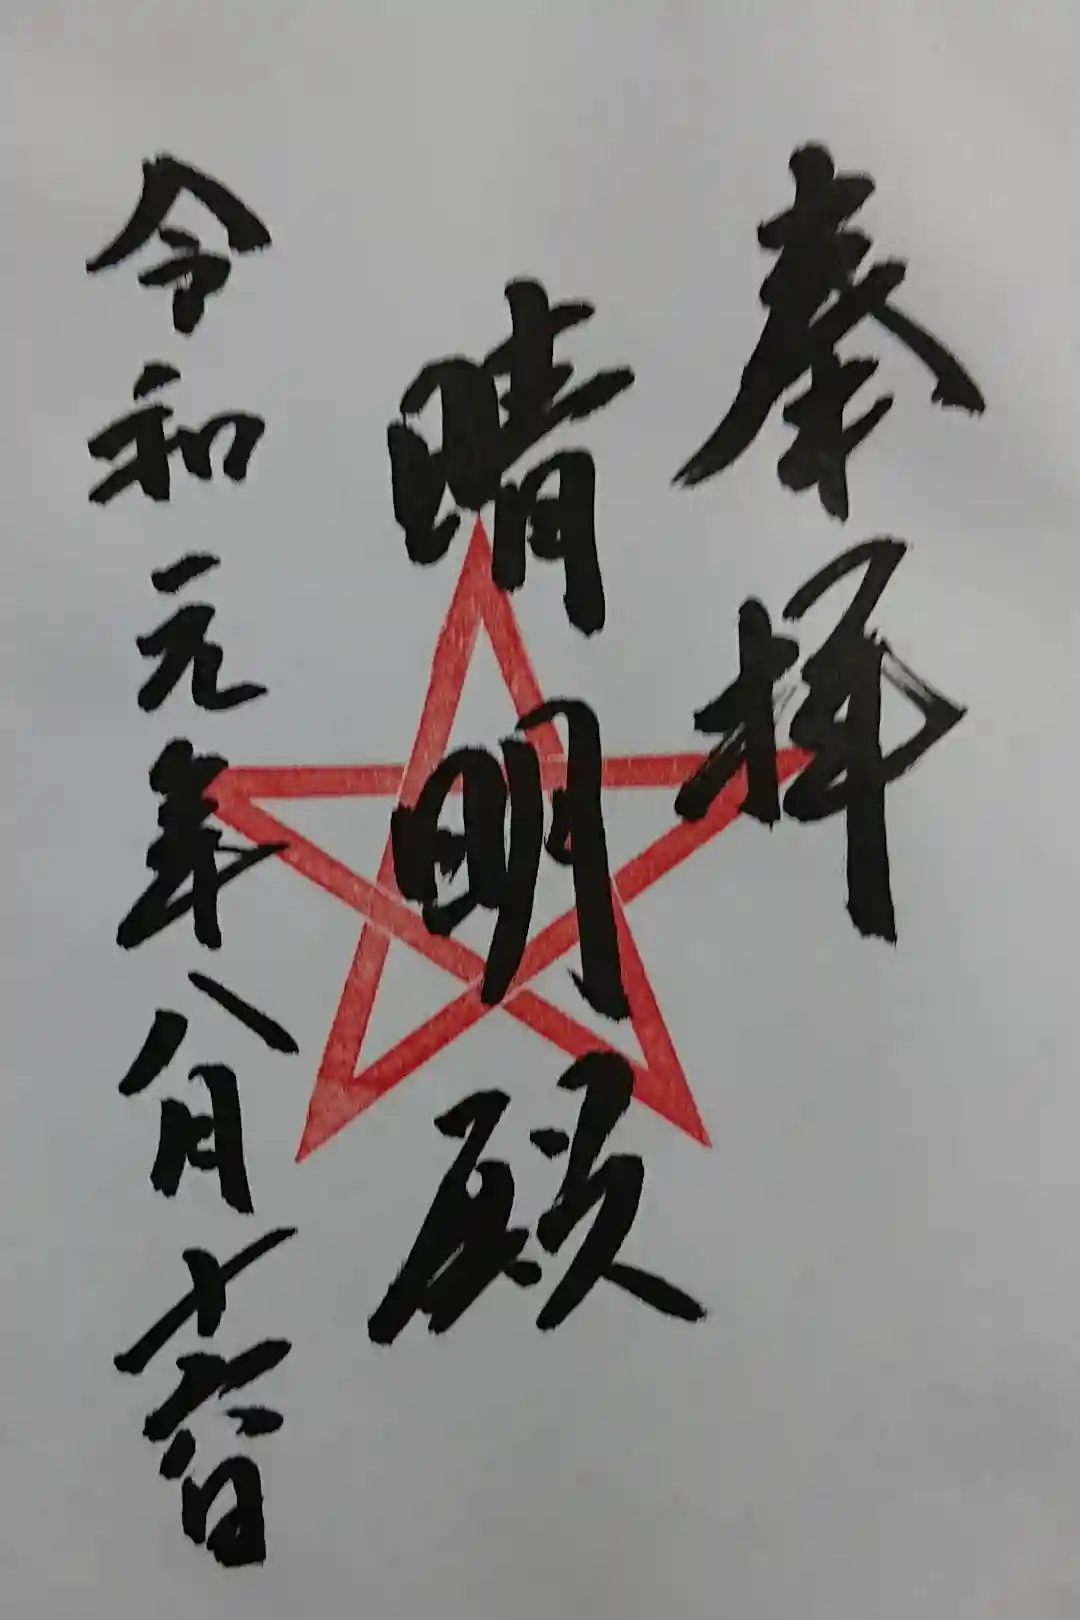 奉拝
晴明殿
令和元年八月十六日